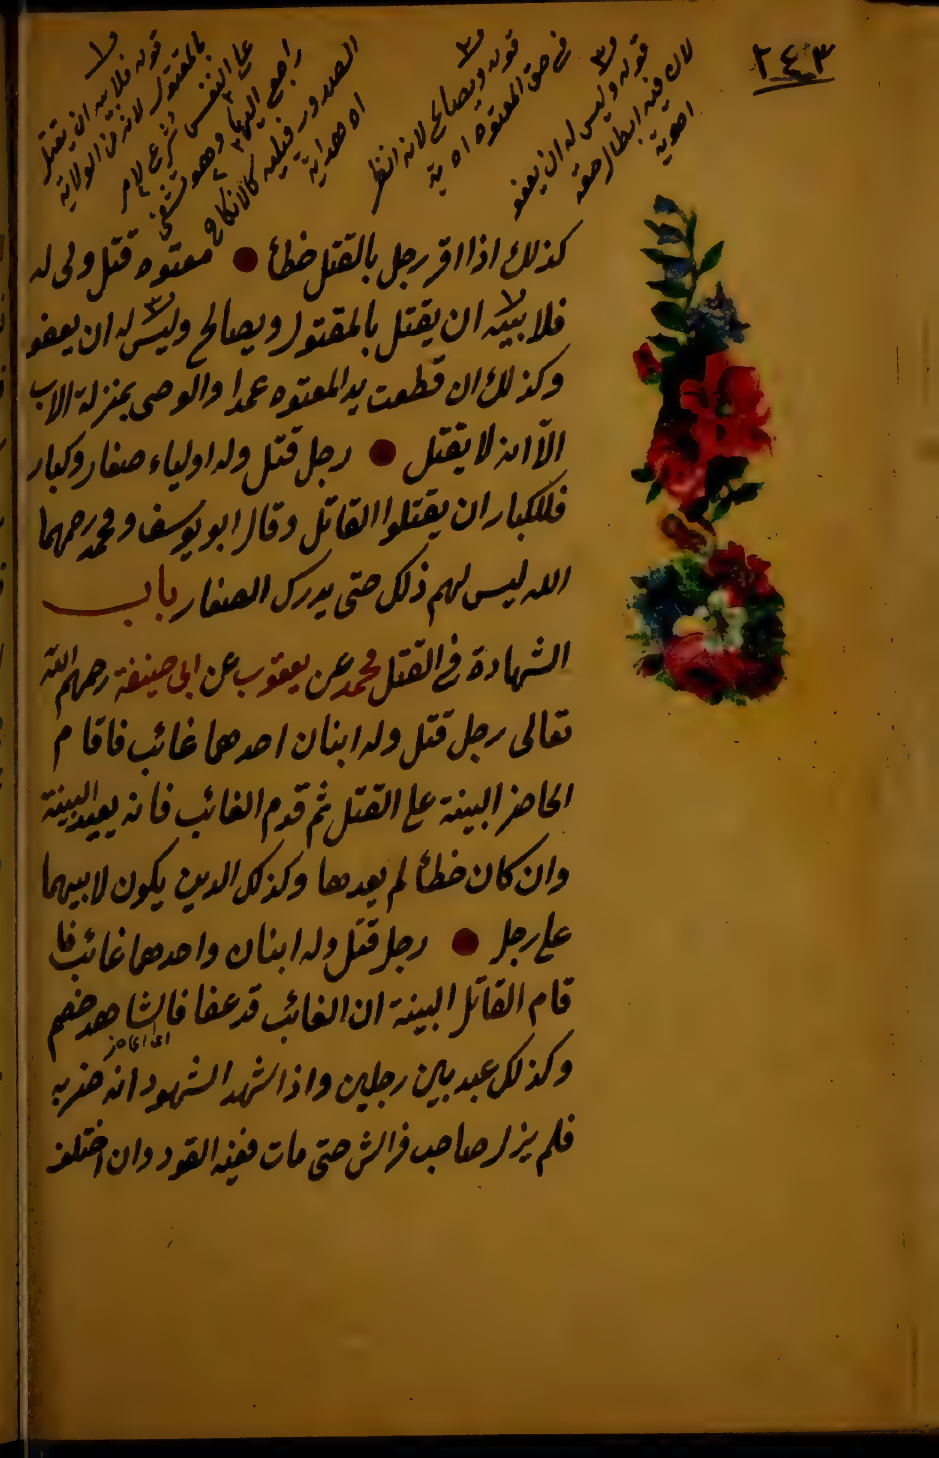 ٢٤٣
قوله فلابيه ان يقتل
بالمقتول لانه من الولاية
على النفس شرع لامر
راجع اليها وهو تشفي
الصدور فيليه كالانكاح
اه هداية
قوله ويصالح لانه انظر
في حق المعتوه اه
قوله وليس له ان يعفو
لان فيه ابطال حقه
كذلك اذا اقر رجل بالقتل خطأ معتوه قتل ولى له
فلابيه ان يقتل بالمقتول ويصالح وليس له ان يعفو
وكذلك ان قطعت يد المعتوه عمدا والوصى بمنزلة الاب
الا انه لا يقتل رجل قتل وله اولياء صغار وكبار
فللكبار ان يقتلوا القاتل وقال ابو يوسف ومحمد رحمهما
الله ليس لهم ذلك حتى يدرك الصغار باب
الشهادة في القتل محمد عن يعقوب عن ابى حنيفة رحمهم الله
تعالى رجل قتل وله ابنان احدهما غائب فاقام
الحاضر البينة على القتل ثم قدم الغائب فانه يعيد البينة
وان كان خطأ لم يعدها وكذلك الدين يكون لابيهما
على رجل رجل قتل وله ابنان واحدهما غائب فا
قام القاتل البينة ان الغائب قد عفا فالشاهد خصم
اى الحاضر
وكذلك عبد بين رجلين واذا شهد الشهود انه ضربه
فلم يزل صاحب فراش حتى مات ففيه القود وان اختلف